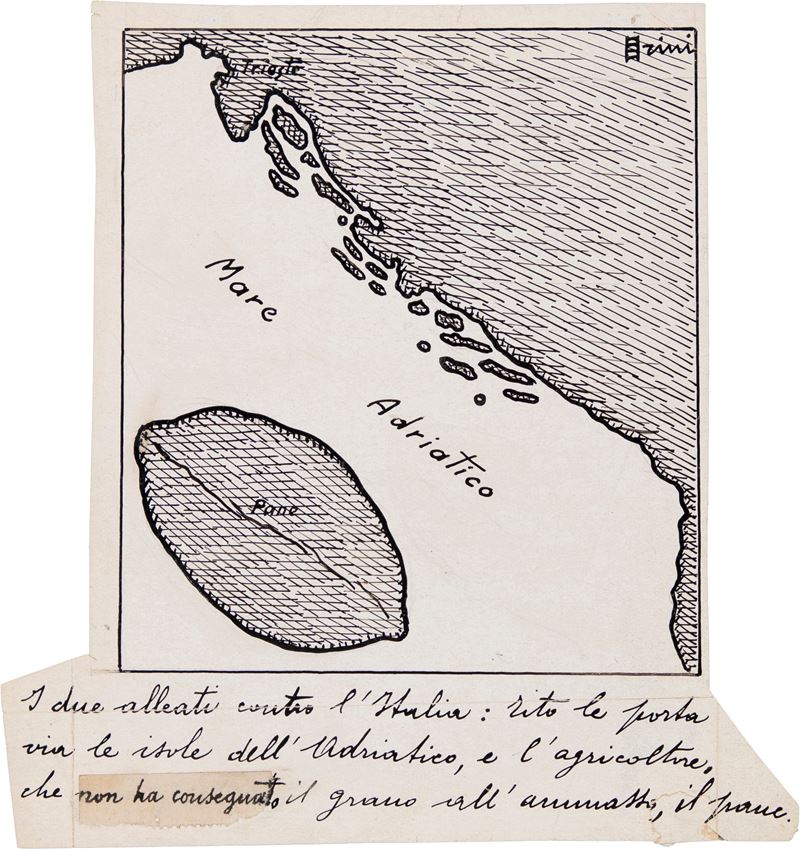 Trieste
Mare
Adriatico
Pane
I due alleati contro l'Italia: Tito le porta
via le isole dell'Adriatico, e l'agricoltore,
che non ha consegnato il grano all'ammasso, il pane.